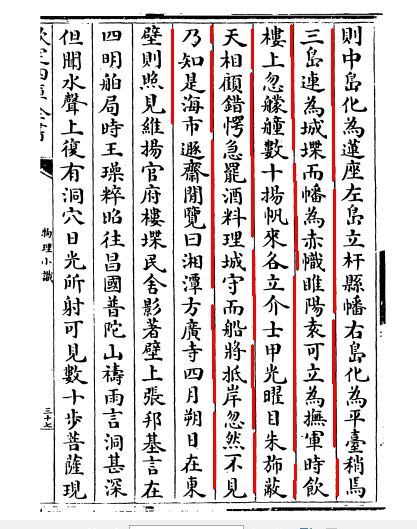 則中島化為蓮座左島立杆縣幡右島化為平臺稍焉
三島連為城堞而幡為赤幟睢陽袁可立為撫軍時飲
樓上忽艨艟數十揚帆來各立介士甲光曜目朱斾蔽
天相顧錯愕急罷酒料理城守而船將抵岸忽然不見
乃知是海市遯齋閒覽曰湘潭方廣寺四月朔日在東
壁則照見維揚官府樓堞民舍影著壁上張邦基言在
四明舶局時王璪粹昭往昌國普陀山禱雨言洞甚深
但聞水聲上復有洞穴日光所射可見數十步菩薩現
欽定四庫全書
物理小識
三十七